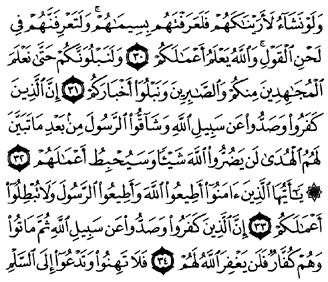 وَلَوْ نَشَآءُ لَأَرَيْنَٰكَهُمْ فَلَعَرَفْتَهُم بِسِيمَٰهُمْ ۚ وَلَتَعْرِفَنَّهُمْ فِى
لَحْنِ ٱلْقَوْلِ ۚ وَٱللَّهُ يَعْلَمُ أَعْمَٰلَكُمْ ٣٠ وَلَنَبْلُوَنَّكُمْ حَتَّىٰ نَعْلَمَ
ٱلْمُجَٰهِدِينَ مِنكُمْ وَٱلصَّٰبِرِينَ وَنَبْلُوَا۟ أَخْبَارَكُمْ ٣١ إِنَّ ٱلَّذِينَ
كَفَرُوا۟ وَصَدُّوا۟ عَن سَبِيلِ ٱللَّهِ وَشَآقُّوا۟ ٱلرَّسُولَ مِنۢ بَعْدِ مَا تَبَيَّنَ
لَهُمُ ٱلْهُدَىٰ لَن يَضُرُّوا۟ ٱللَّهَ شَيْـًٔا وَسَيُحْبِطُ أَعْمَٰلَهُمْ ٣٢
۞ يَٰٓأَيُّهَا ٱلَّذِينَ ءَامَنُوٓا۟ أَطِيعُوا۟ ٱللَّهَ وَأَطِيعُوا۟ ٱلرَّسُولَ وَلَا تُبْطِلُوٓا۟
أَعْمَٰلَكُمْ ٣٣ إِنَّ ٱلَّذِينَ كَفَرُوا۟ وَصَدُّوا۟ عَن سَبِيلِ ٱللَّهِ ثُمَّ مَاتُوا۟
وَهُمْ كُفَّارٌ فَلَن يَغْفِرَ ٱللَّهُ لَهُمْ ٣٤ فَلَا تَهِنُوا۟ وَتَدْعُوٓا۟ إِلَى ٱلسَّلْمِ